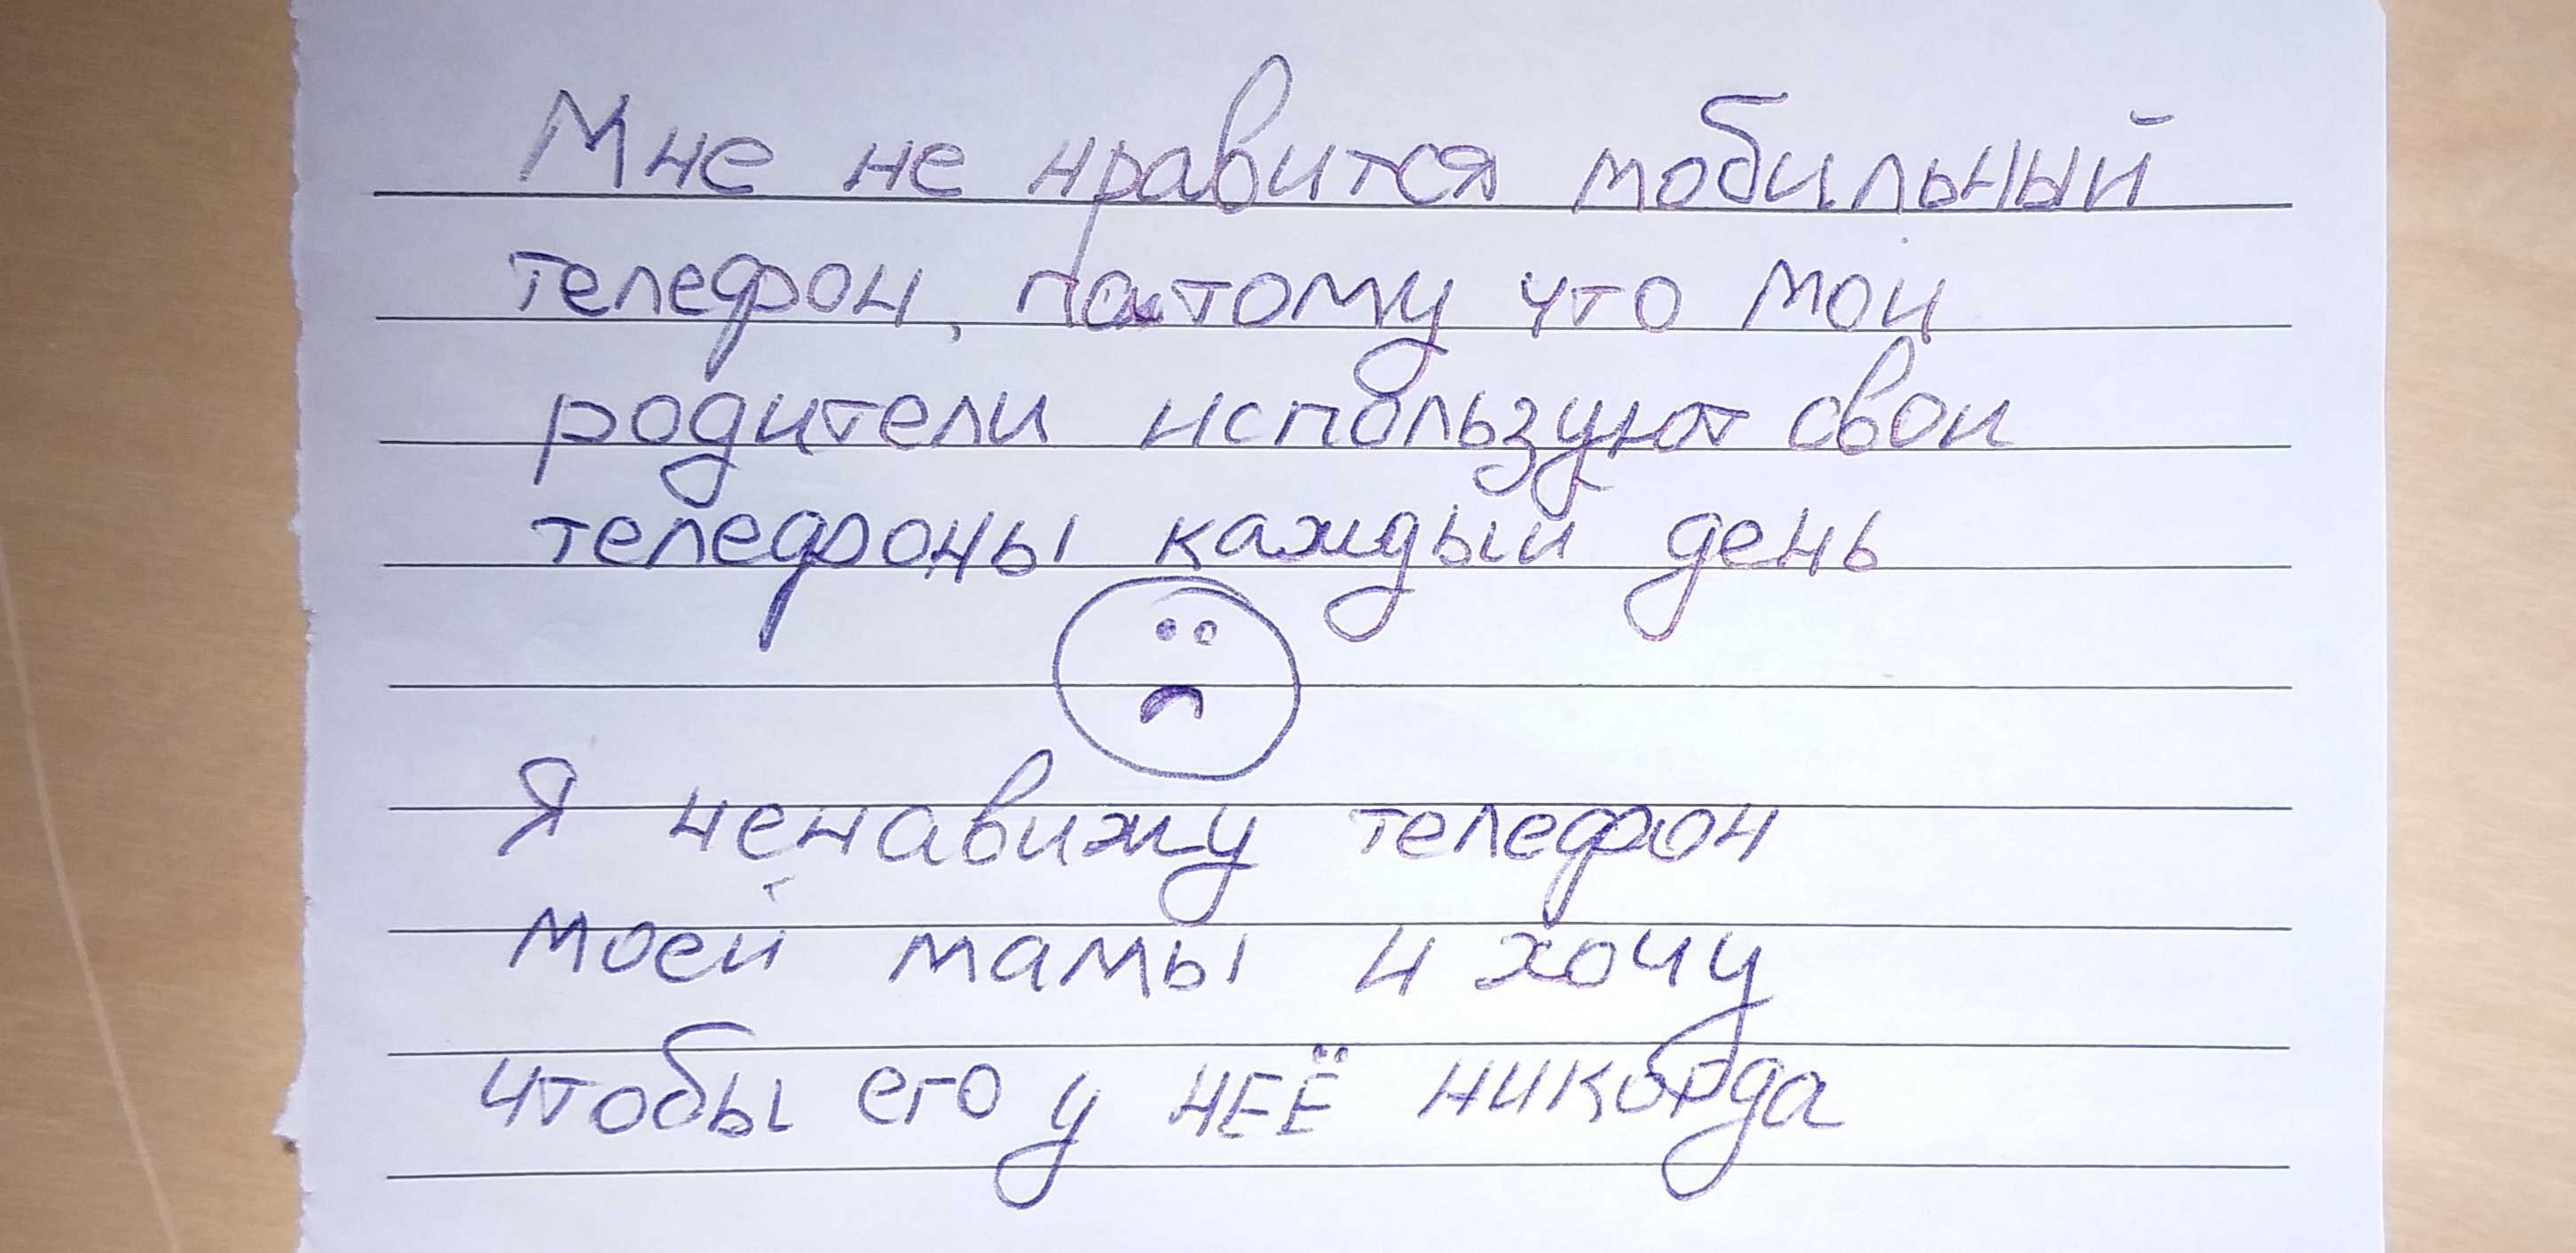 Мне не нравится мобильный
телефон, патому что мои
родители используют свои
телефоны каждый день
Я ненавижу телефон
моей мамы и хочу
чтобы его у неё никогда